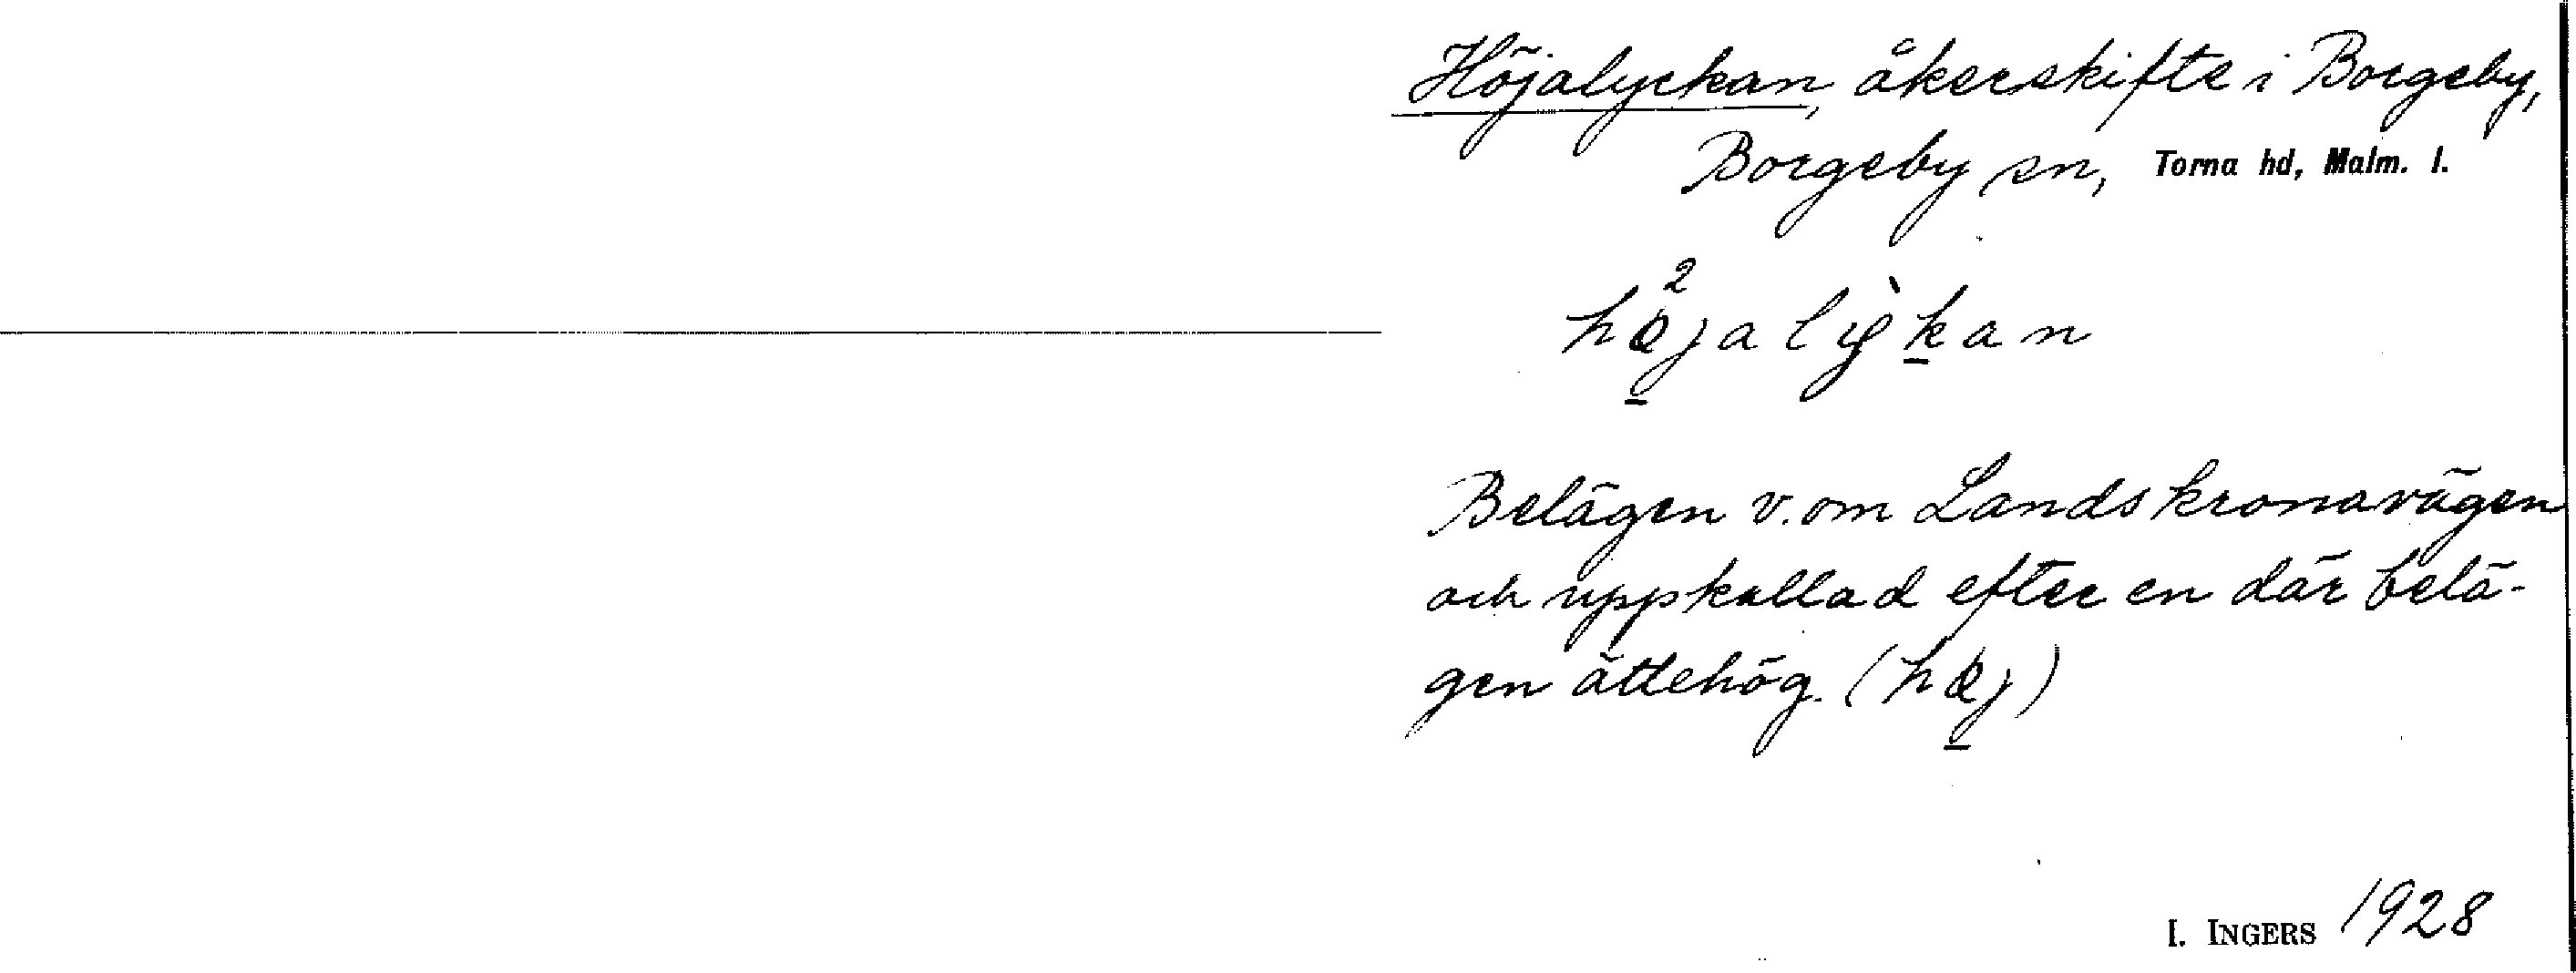 Höjalyckan, åkerskifte i Borgeby,
Borgeby sn, Torna hd, Malm. l.
Belägen v. om Landskronavägen
och uppkallad efter en där belä-
gen ättehög. (høj)
I. INGERS 1928